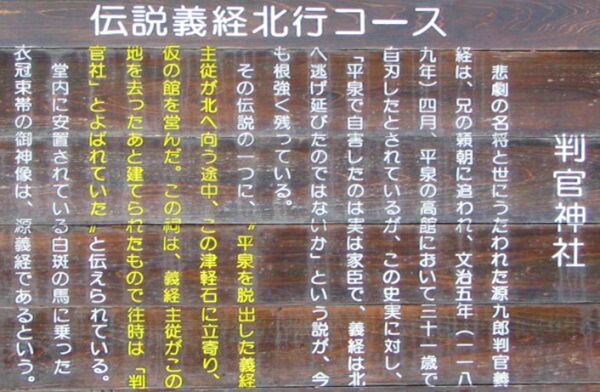 伝説義経北行コース
判官神社
悲劇の名将と世にうたわれた源九郎判官義
経は、兄の頼朝に追われ、文治五年(一一八
九年)四月、平泉の高館において三十一歳で
自刃したとされているが、この史実に対し、
「平泉で自害したのは実は家臣で、義経は北
へ逃げ延びたのではないか」という説が、今
も根強く残っている。
その伝説の一つに、〝平泉を脱出した義経
主従が北へ向う途中、この津軽石に立寄り、
仮の館を営んだ。この祠は、義経主従がこの
地を去ったあと建てられたもので往時は「判
官社」とよばれていた〟と伝えられている。
堂内に安置されている白斑の馬に乗った
衣冠束帯の御神像は、源義経であるという。